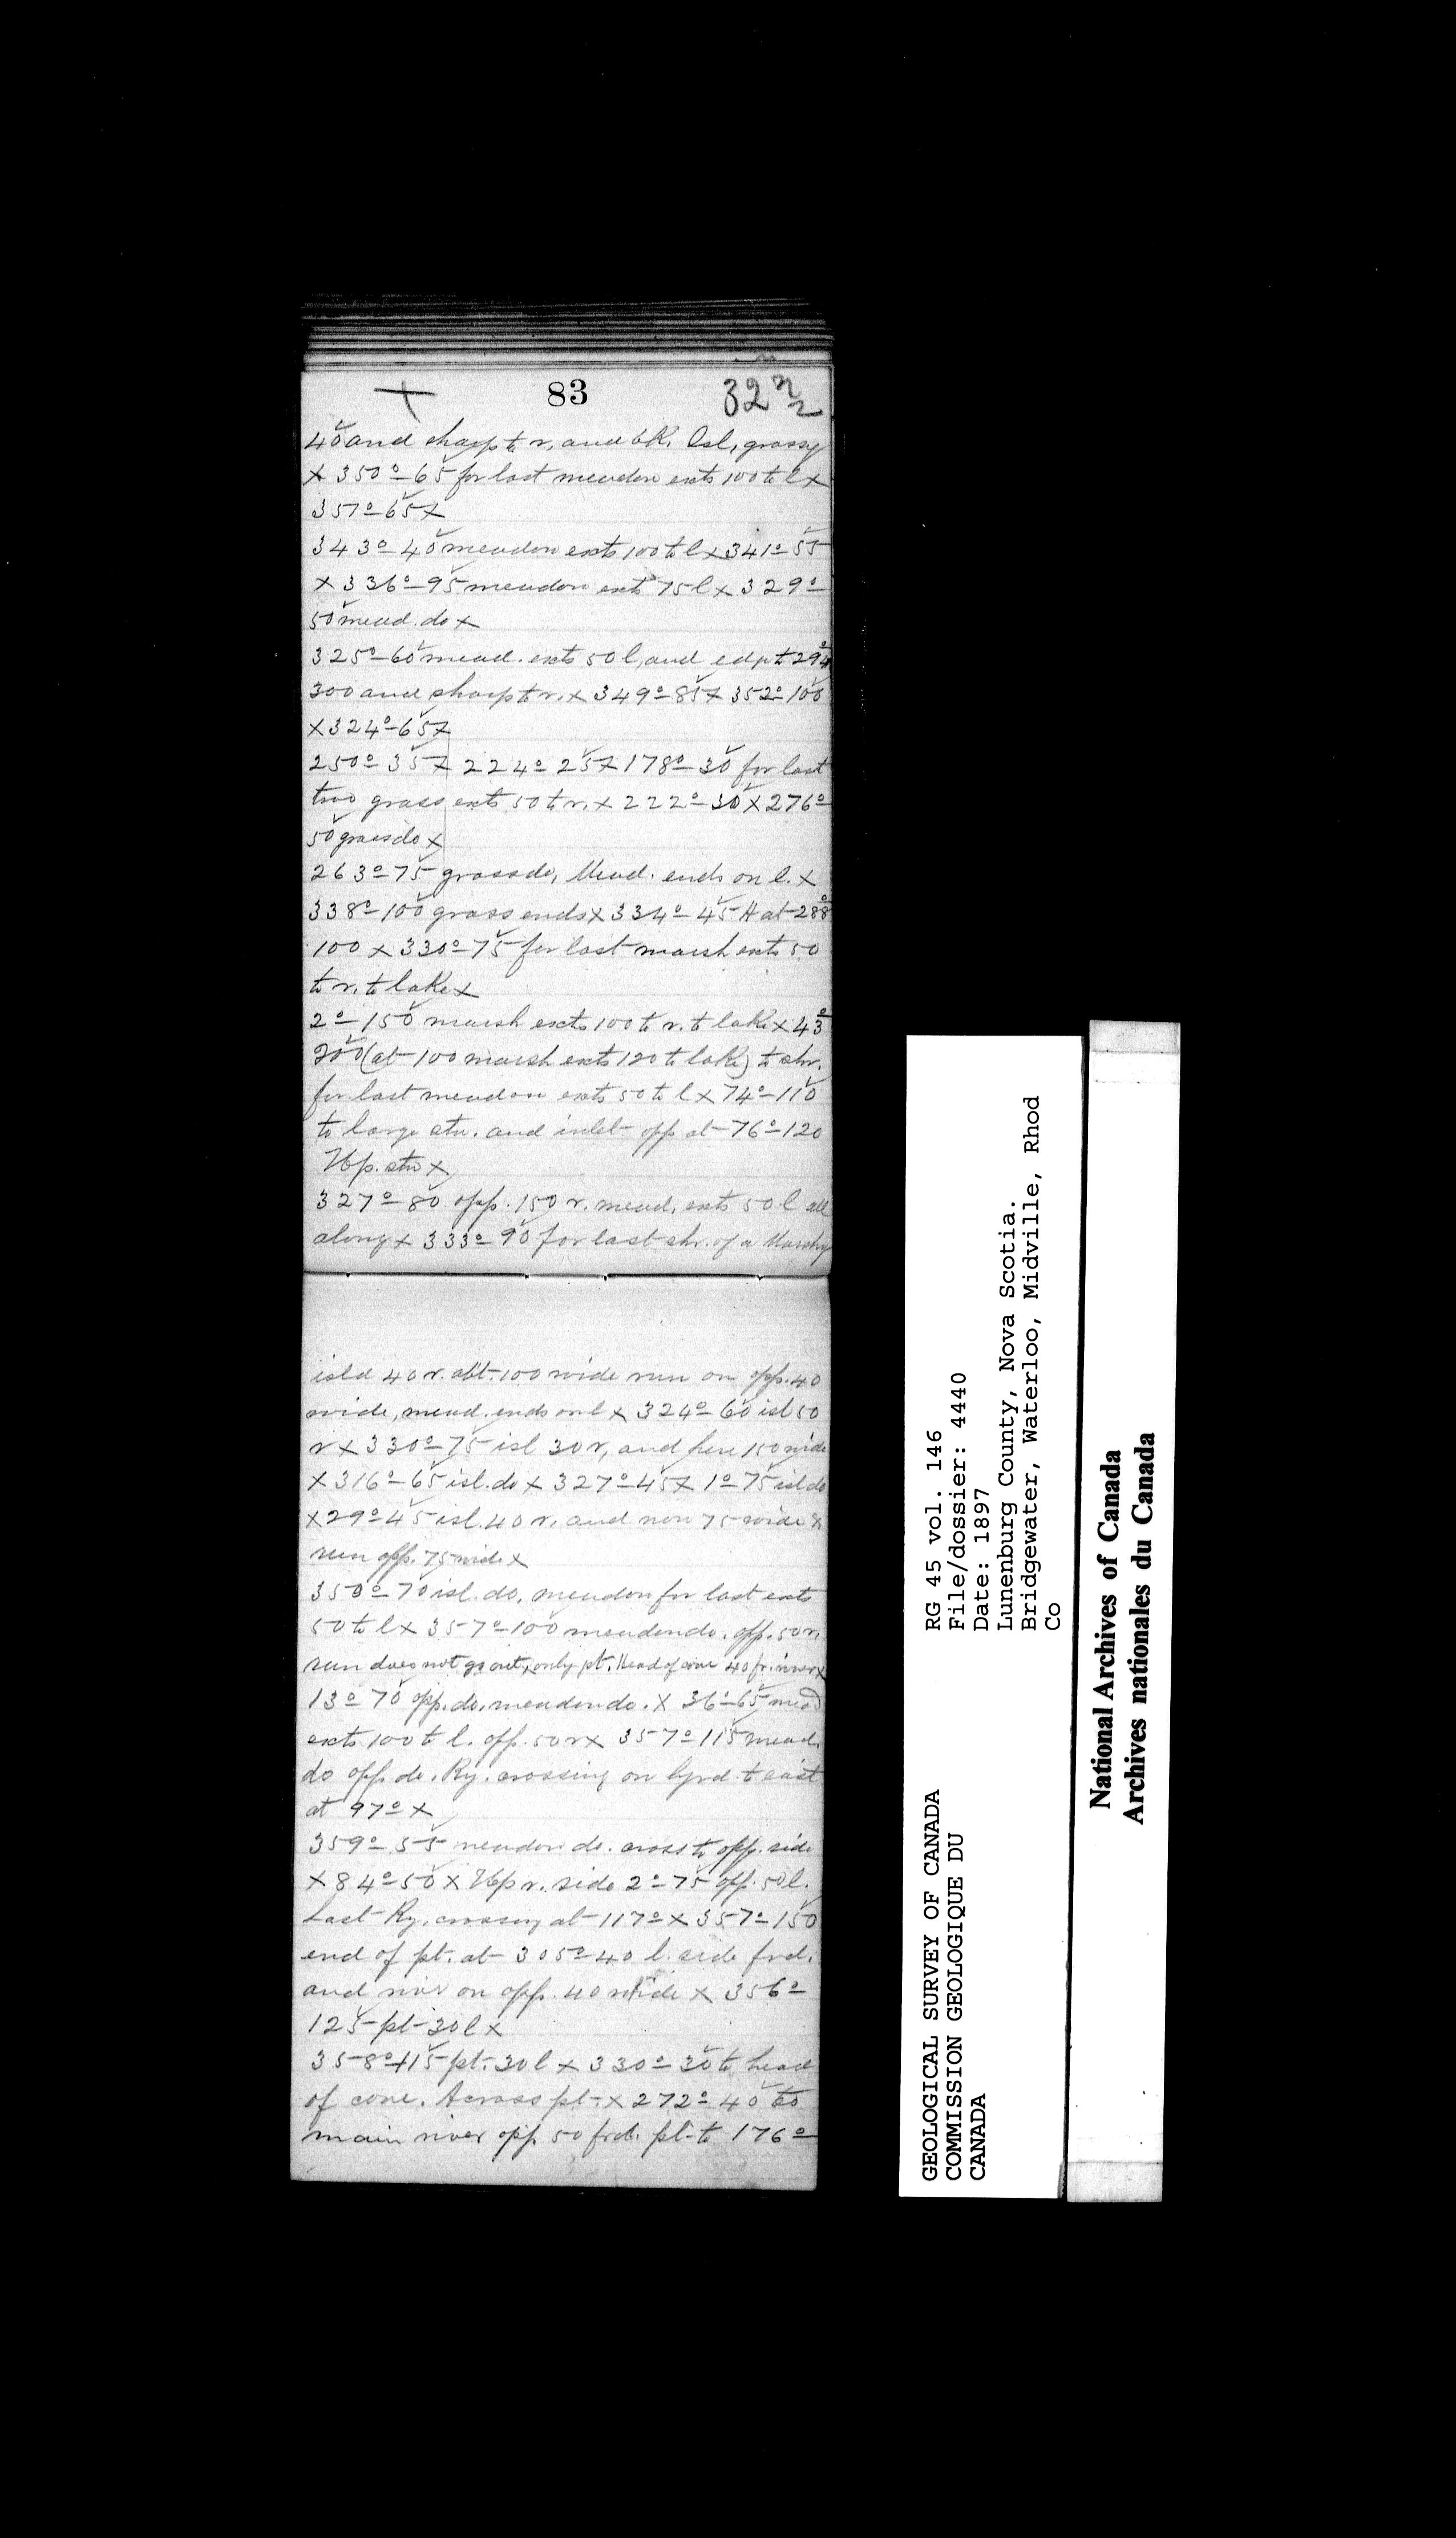 83
40 and sharp to r, and bK. Isl, grassy
X 350° - 65 for last meadow exts 100 to l X
357° - 65 X
343° - 40 meadow exts 100 to l X 341° - 55
X 336° - 95 meadow exts 75 l X 329° -
50 mead. do X
325° - 60 mead. exts 50 l, and edpt 294°
300 and sharp to r. X 349° - 85 X 352° - 100
X 324° - 65 X
250° - 35 X 224° - 25 X 178° - 30 for last
two grass exts 50 to r. X 222° - 30 X 276° -
50 grass do X
263° - 75 grass do, Mead. ends on l. X
338° - 100 grass ends X 334° - 45 H at - 288°
100 X 330° - 75 for last marsh exts 50
to r. to lake X
2° - 150 marsh exts 100 to r. to lake X 43°
200 (at 100 marsh exts 120 to lake) to shr.
for last meadow exts 50 to l X 74° - 110
to large stn. and inlet opp at - 76° - 120
Up. stn X
327° - 80 opp. 150 r. mead, exts 50 l all
along X 333° - 90 for last shr. of a Marshy
isld 40 r. abt. 100 wide run on opp. 40
wide, mead. ends on l X 324° - 60 isl 50
r X 330° - 75 isl 30 r, and here 150 wide
X 316° - 65 isl. do X 327° - 45 X 1° - 75 isl do
X 29° - 45 isl. 40 r, and now 75 wide &
run opp. 75 wide X
350° - 70 isl. do, meadow for last exts
50 to l X 357° - 100 meadow do. opp. 50 r.
run does not go out, only pt. Head of cove 40 fr. river X
13° - 70 opp. do. meadow do. X 36° - 65 mead
exts 100 to l. opp. 50 r X 357° - 115 mead.
do opp do. Ry. crossing on to east
at 97° X
359° - 55 meadow do. cross to opp. side
X 84° - 50 X Up r. side 2° - 75 opp. 50 l.
Last Ry. crossing at - 117° X 357° - 150
end of pt. at - 305° - 40 l. side frd.
and river on opp. 40 wide X 356° -
125 - pt - 30 l X
358° - 115 - pt. 30 l X 330° - 30 to head
of cove. Across pt - X 272° - 40 to
main river opp 50 frd. pt - to 176° -
RG 45 vol. 146
File/dossier: 4440
Date: 1897
Lunenburg County, Nova Scotia.
Bridgewater, Waterloo, Midville, Rhod
Co
GEOLOGICAL SURVEY OF CANADA
COMMISSION GEOLOGIQUE DU
CANADA
National Archives of Canada
Archives nationales du Canada